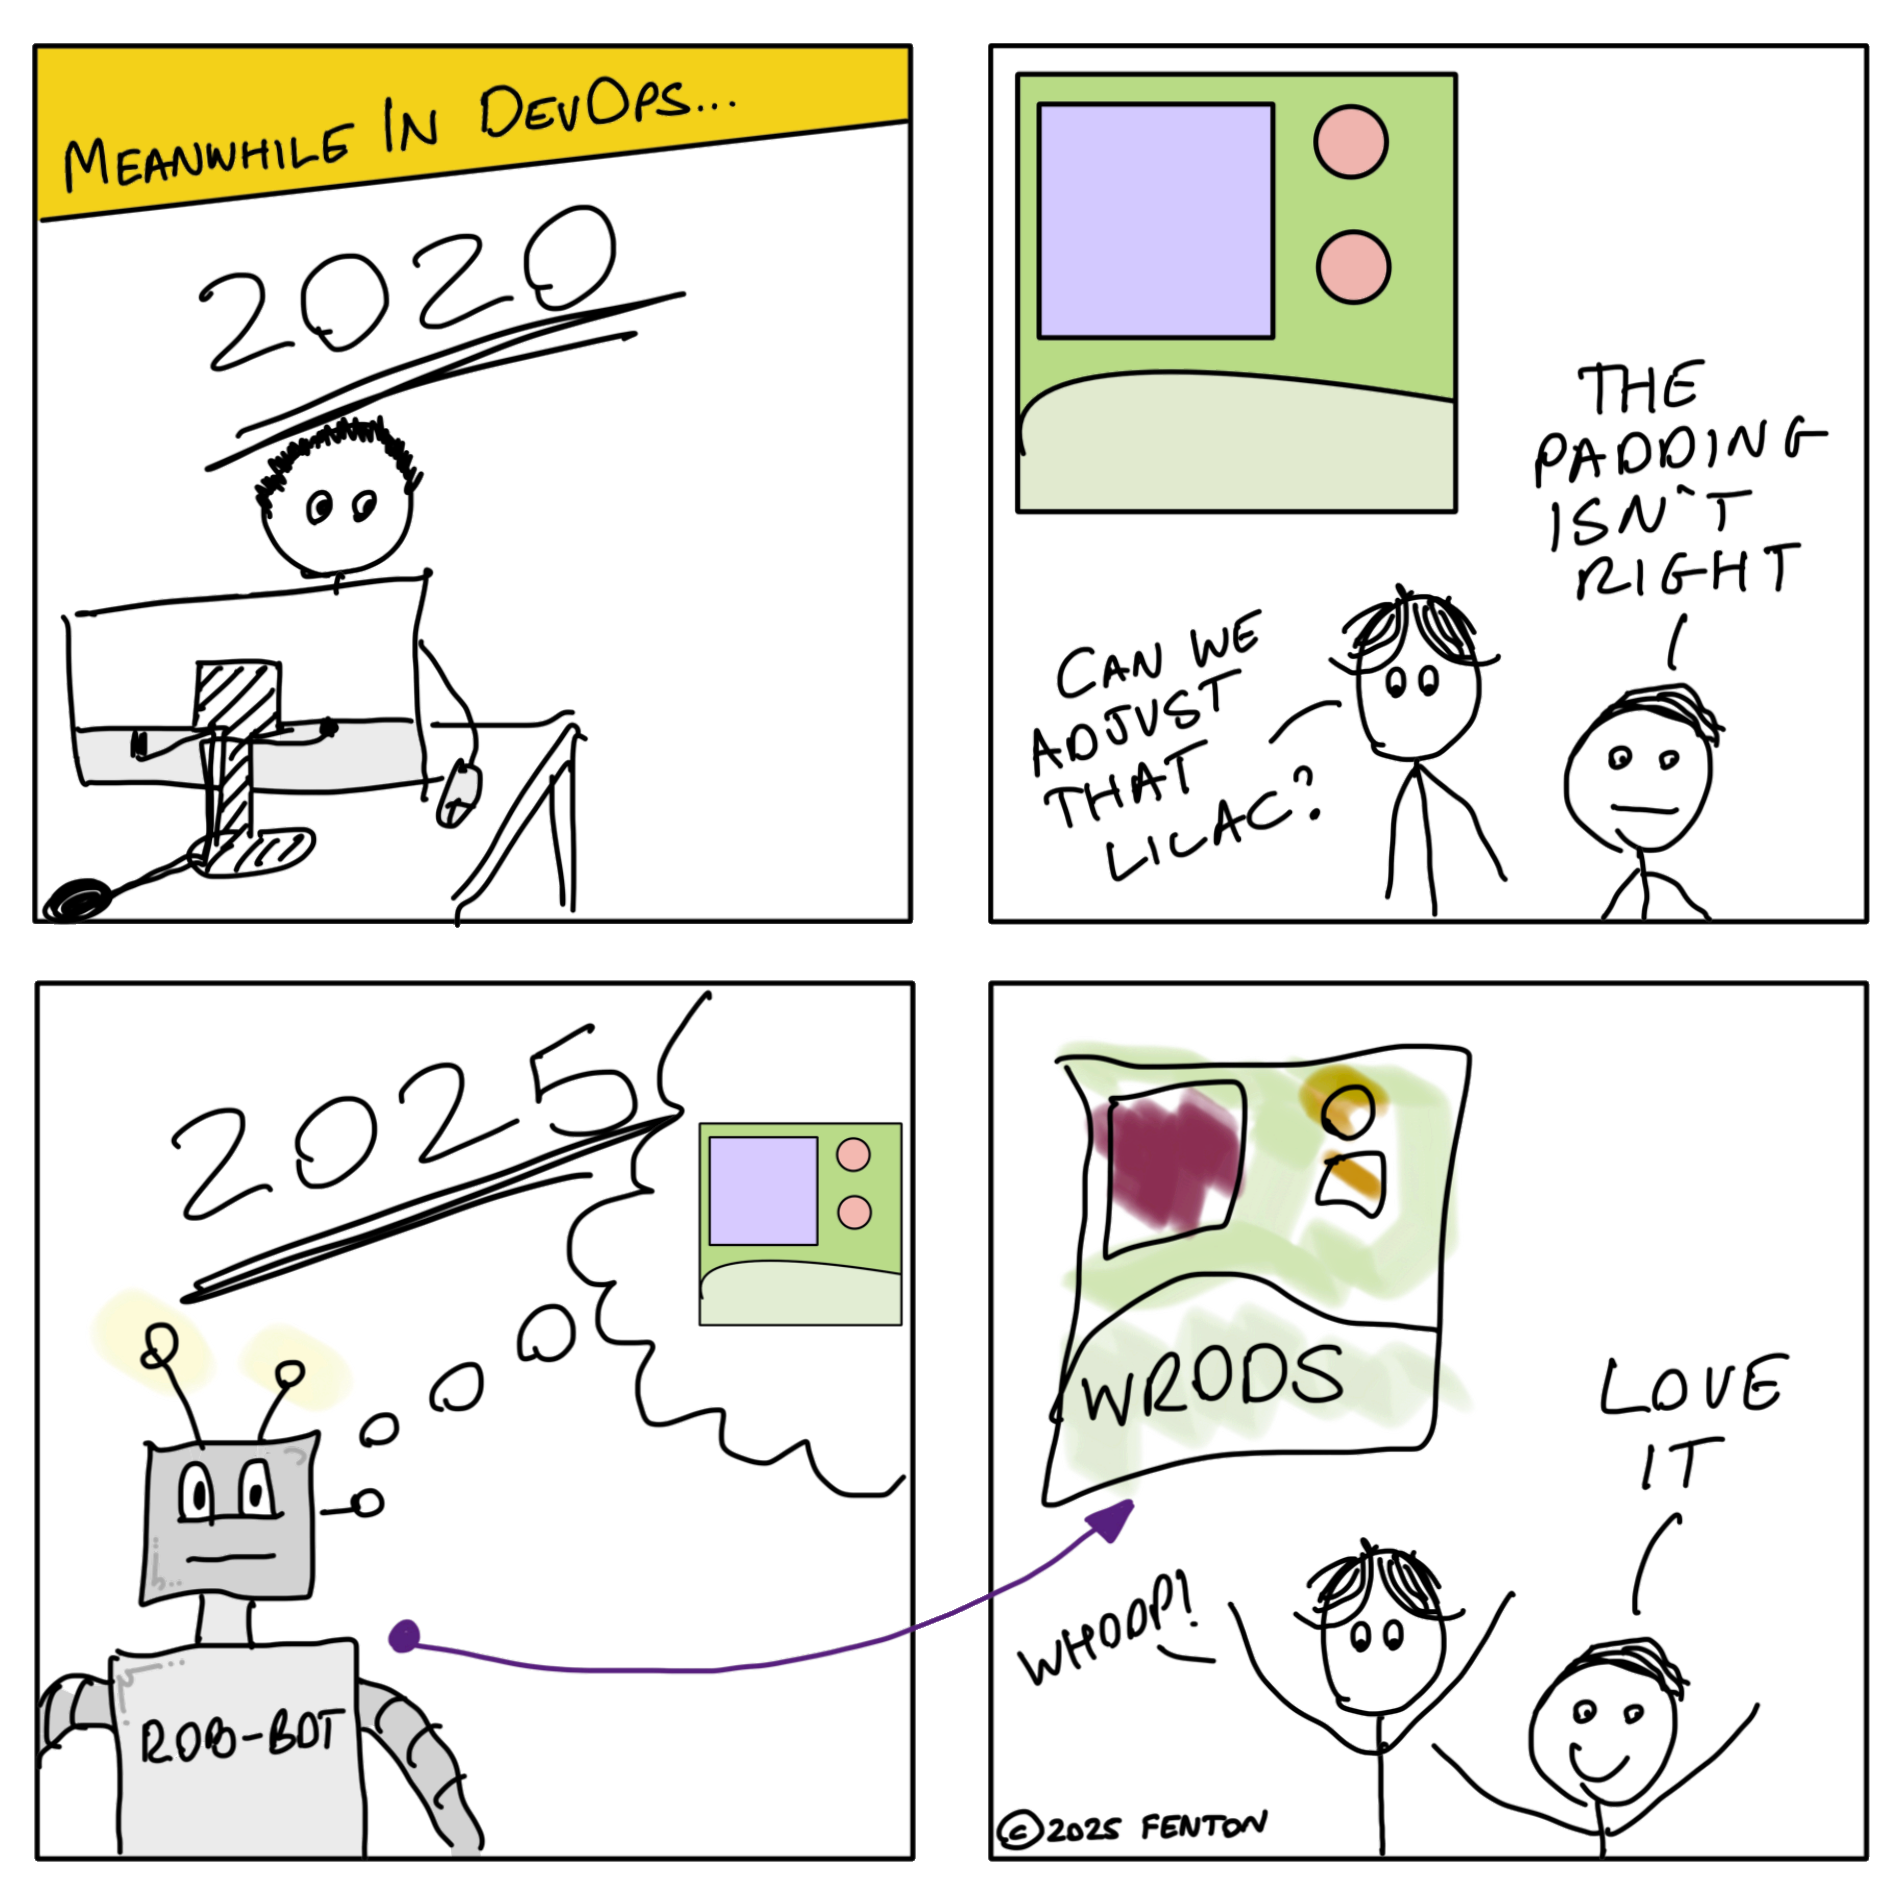 MEANWHILE IN DEVOPS...
2020
CAN WE
ADJUST
THAT
LILAC?
THE
PADDING
ISN'T
RIGHT
2025
ROB-BOT
WRODS
WHOOP!
LOVE
IT
© 2025 FENTON